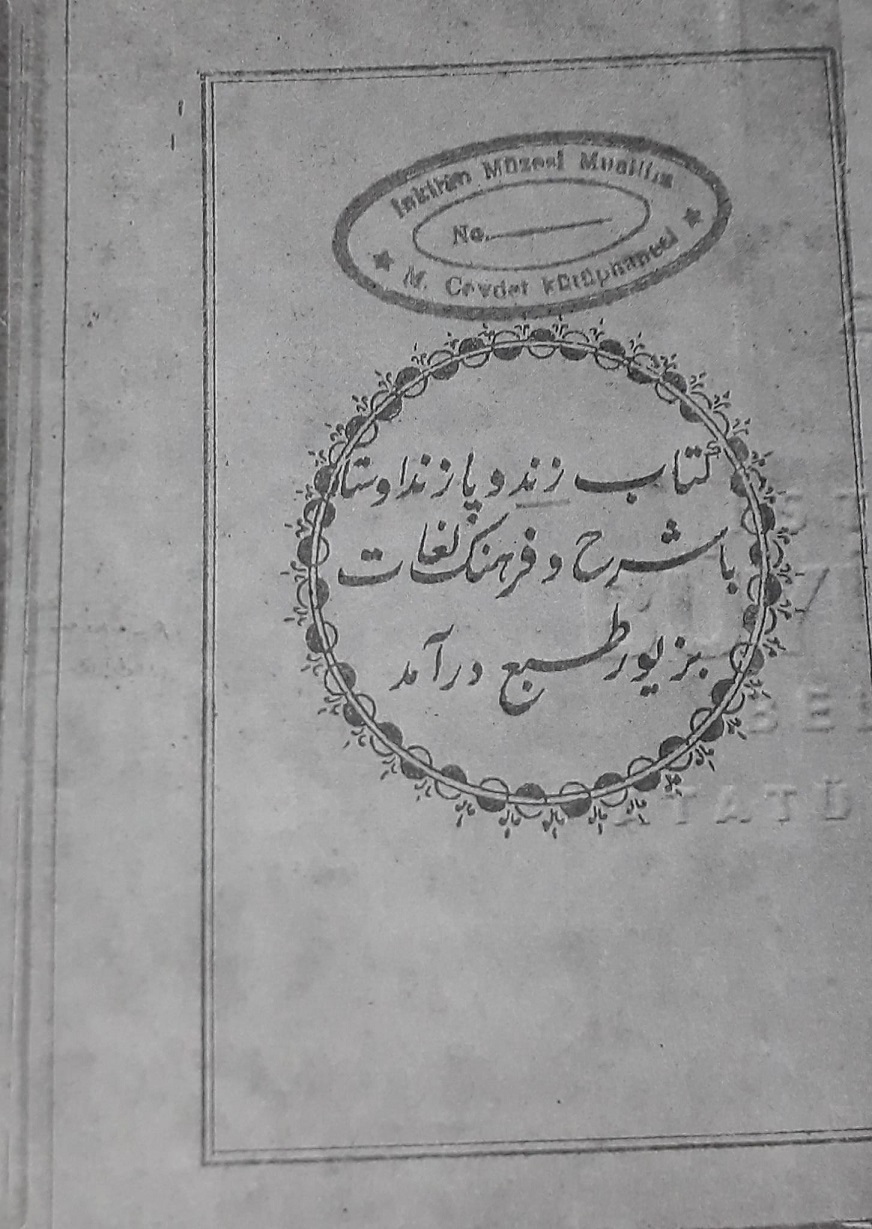 İnkilâp Müzesi Muallim
No.
M. Cevdet kütüphanesi
کتاب زند و پازند اوستا
با شرح و فرهنک لغات
بزیور طبع درآمد
ATATÜ